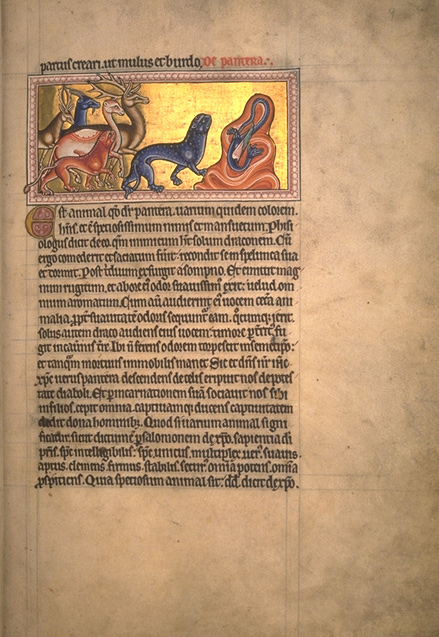 partus creari. ut mulus et burdo. De pantera.
Est animal qđ dr̄ pantera. uarium quidem colorem
hn̄s. et ē speciosissimum nimis et mansuetum. Phisi
ologus dicit de eo. qm̄ inimicum ht̄ solum draconem. Cū
ergo comederit et saciatum fuerit: recondit se in spelunca sua
et dormit. Post triduum exsurgit a sompno. Et emittit mag
num rugitum. et ab ore eī odor suauissimꝰ exit: uelud om
nium aromatum. Cum aū audierint eī uocem cet̄a ani
malia. ꝓpt̄ suauitatē odoris sequunt̄ eam. quocumqꝫ ierit.
solus autem draco audiens eius uocem: timore ꝑt̄rit̄ fu
git in cauernis t̄re. Ibi ñ ferens odorem torpescit in semetipso:
et tanqᷓm mortuus immobilis manet. Sic et dn̄s nr̄ ihc
xpc uerus pantera descendens de celis eripuit nos de potes
tate diaboli. Et ꝑ incarnationem suā sociauit nos sibi
in filios. cepit omnia. captiuamqꝫ ducens captiuitatem
dedit dona hominibꝫ. Quod aū uarium animal signi
ficatur. sicut dictum ē ꝑ salomonem de xp̄o. sapientia di
pr̄is. spc intelligibilis. spc unicus. multiplex. uerꝰ. suauis
aptus. clemens. firmus. stabilis. securꝰ. omnia potens. omnia
ꝑspiciens. Quia speciosum animal sit: dd dicit de xp̄o.